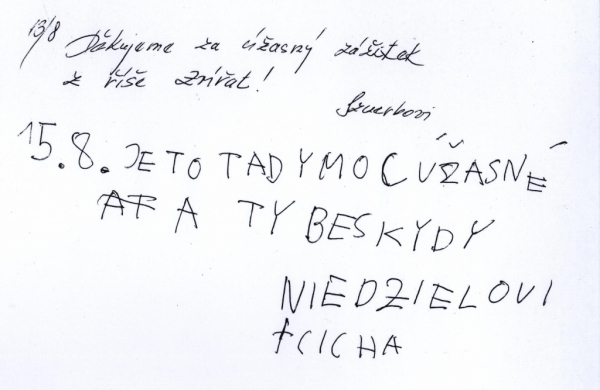 13/8 Děkujeme za úžasný zážitek
z říše zvířat!
Szuerbovi
15.8. JE TO TADY MOC ÚŽASNÉ
A TY BESKYDY
NIEDZIELOVI
+ CICHA